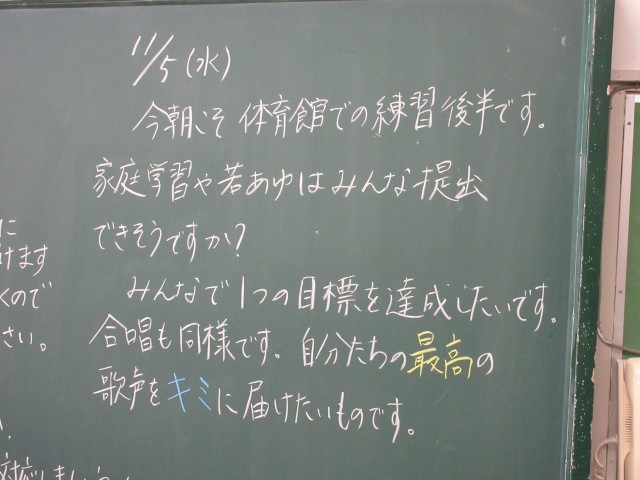 11/5(水)
今朝こそ体育館での練習後半です。
家庭学習や若あゆはみんな提出
できそうですか?
みんなで1つの目標を達成したいです。
合唱も同様です。自分たちの最高の
歌声をキミに届けたいものです。
に
けます
くので
さい。